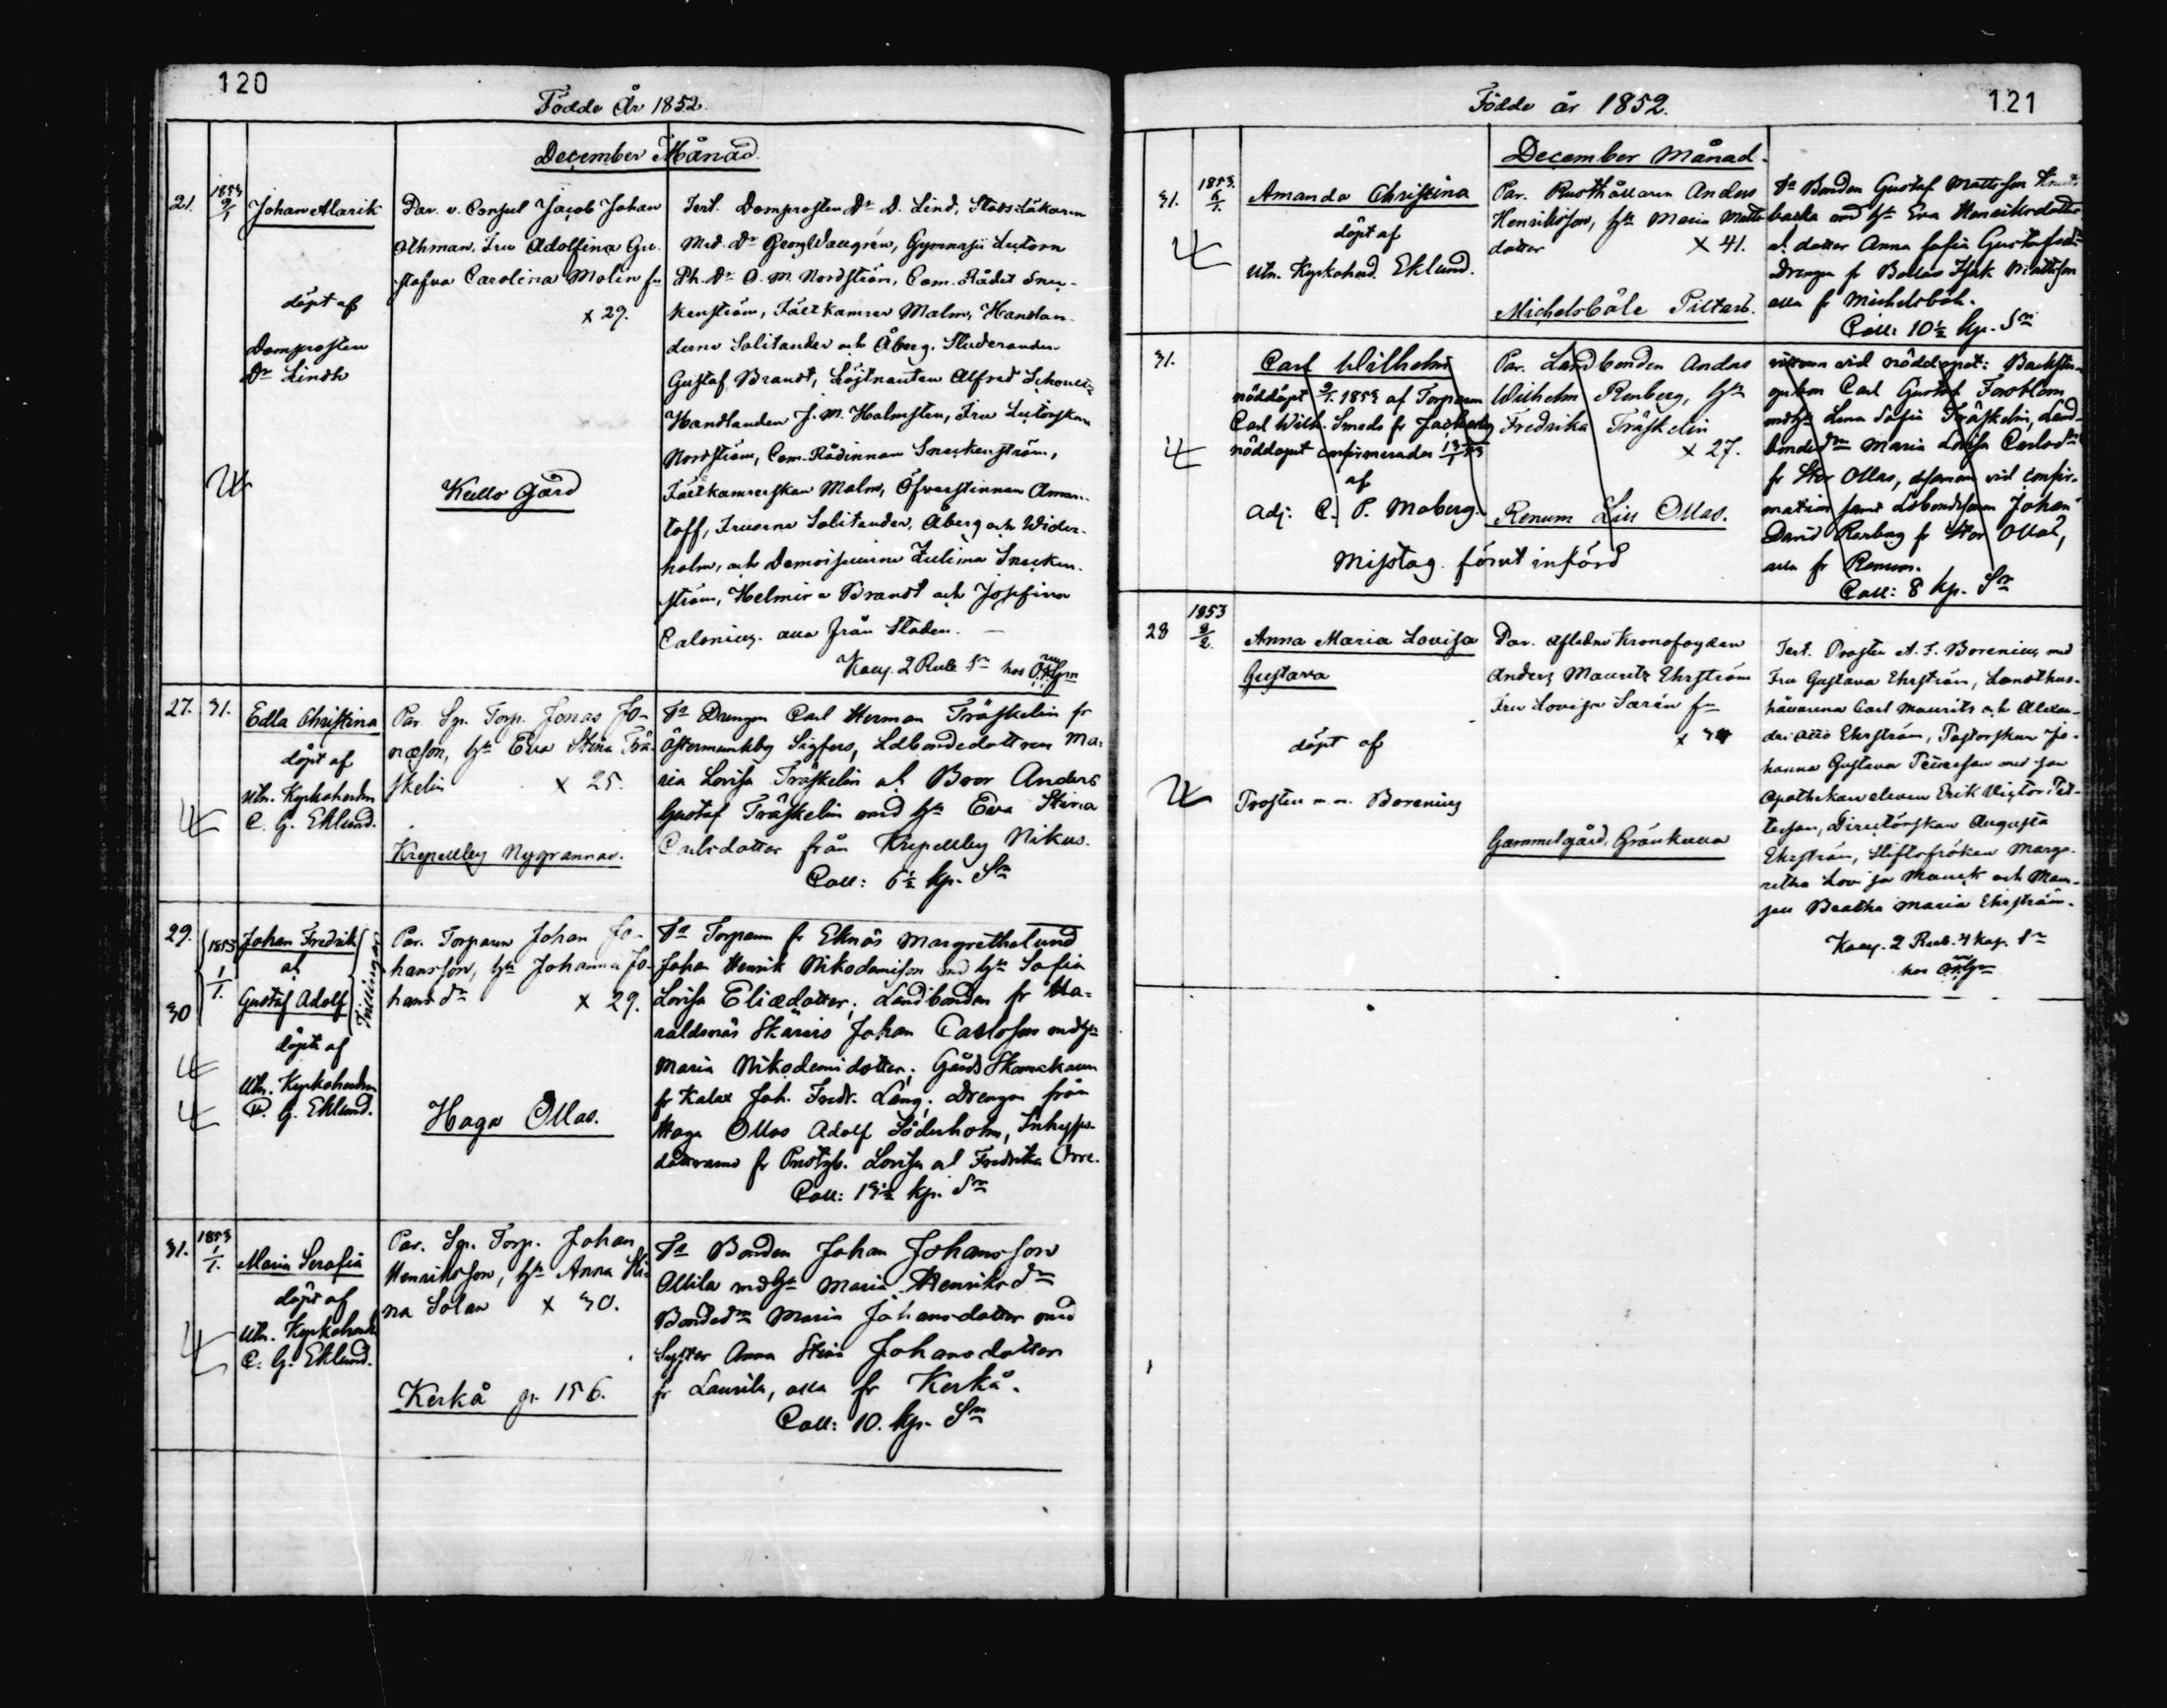 120
Födde År 1852.
December Månad.
21.
1853
2/1
Johan Alarik
döpt af
Domprosten
Dr Lindh
Par. v. Consul Jacob Johan
Othman. Fru Adolfina Gu-
stafva Carolina Molin f.
x 29.
Kullo Gård
Test. Domprosten Dr D. Lind, Stads Läkaren
Med. Dr Georg Wallgrén, Gymnasii Lectorn
Ph. Dr O. M. Nordström, Com. Rådet Snec-
kenström, Fält kamrer Malm, Handlan-
derne Solitander och Åberg. Studeranden
Gustaf Brandt, Löjtnanten Alfred
Handlanden J. M. Holmsten, Fru Lectorskan
Nordström, Com. Rådinnan Sneckenström,
Fältkamrerskan Malm, Öfverstinnan Aman-
toff, Fruarna Solitander, Åberg och Wider-
holm, och Demoisellerna Zulima Snecken-
ström, Helmira Brandt och Josefina
Calonius. alla från Staden.
2 Rub. Sr hos
27. 31.
Edla Christina
döpt af
Utn. Kyrkoherden
C. G. Eklund.
Par. Sp. Torp. Jonas Jo-
næson, h. Eva Stina Trä-
skelin x 25.
Krepelby Nygrannas.
Fa Drengen Carl Herman Träskelin fr
Östermunkby Sigfers, Ldbondedottren Ma-
ria Lovisa Träskelin o. Broor Anders
Gustaf Träskelin med h. Eva Stina
Carlsdotter från Krepelby Nikus.
Coll: 6½ kp. Sr
29.
30
1853
1/1.
Johan Fredrik
o.
Gustaf Adolf
Tvillingar
döpte af
Utn. Kyrkoherden
C. G. Eklund.
Par. Torparen Johan Jo-
hansson, h. Johanna Jo-
hansdr x 29.
Haga Ollas.
Fa Torparen fr Eknäs Margrethelund
Johan Henrik Nikodemison med h. Sofia
Lovisa Eliædotter; Landbonden fr Ha-
raldsnäs Skäris Johan Carlsson med h.
Maria Nikodemidotter; Gårds Skomakaren
fr Kalax Joh. Fredr. Lang. Drengen från
Haga Ollas Adolf Söderholm, Inhyses-
döttrarna fr Prostgb. Lovisa o. Fredrika Orre.
Coll: 13½ kp. Sr
31.
1853
1/1.
Maria Serafia
döpt af
Utn. Kyrkoherden
C. G. Eklund.
Par. Sp. Torp. Johan
Henriksson, h. Anna Sti-
na Solan x 30.
Kerkå gr. 156.
Fa Bonden Johan Johansson
Ollila med h. Maria Henriksdr
Bondedr Maria Johansdotter med
Syster Anna Stina Johansdotter
fr Laurila, alla fr Kerkå.
Coll: 10. kp. Sr
121
Födde år 1852.
December Månad.
31.
1853.
6/1.
Amanda Christina
döpt af
Utn. Kyrkoherd. Eklund.
Par. Rusthållaren Anders
Henriksson, h. Maria Matts-
dotter x 41.
Michelsböle Piltars.
Fa Bonden Gustaf Mattsson Knuts
backa med h. Eva Henriksdotter
o. dotter Anna Sofia Gustafsdr
Drengen fr Bollas Isak Mattsson
alla fr Michelsböle.
Coll: 10½ kp. Sr
31.
Carl Wilhelm
nöddöpt 2/1 1853 af Torparen
Carl Wilh. Smeds fr Jackarby
nöddopet confirmerades
af
Adj: C. P. Moberg.
Par. Landbonden Anders
Wilhelm Renberg, h.
Fredrika Träskelin
x 27.
Renum Lill Ollas.
Mistag. förut införd
vittnen vid nöddopet: Backstu-
gukarn Carl Gustaf Forsblom
med h. Lena Sofia Träskelin, Land-
bondedr Maria Lovisa Carlsdr
fr Stor Ollas, desamma vid confir-
mation samt Ldbondesonen Johan
David Renberg fr Stor Ollas,
alla fr Renum.
Coll: 8 kp. Sr
28
1853
8/2.
Anna Maria Lovisa
Gustava
döpt af
Prosten m.m. Borenius
Par. Afledne Kronofogden
Anders Mauritz Ehrström
Fru Lovisa Sarén f.
Gammelgård, Gränkulla
Test. Prosten A. F. Borenius med
Fru Gustava Ehrström, Landthus-
hållarena Carl Maurits och Alexan-
der Otto Ehrström, Pastorskan Jo-
hanna Gustava Petterson med son
Apothekare eleven Erik Victor Pet-
terson, Directörskan Augusta
Ehrström, Stiftsfröken Marga-
retha Lovisa Munck och Mam-
sell Beatha Maria Ehrström.
2 Rub. 4 kop. Sr
hos